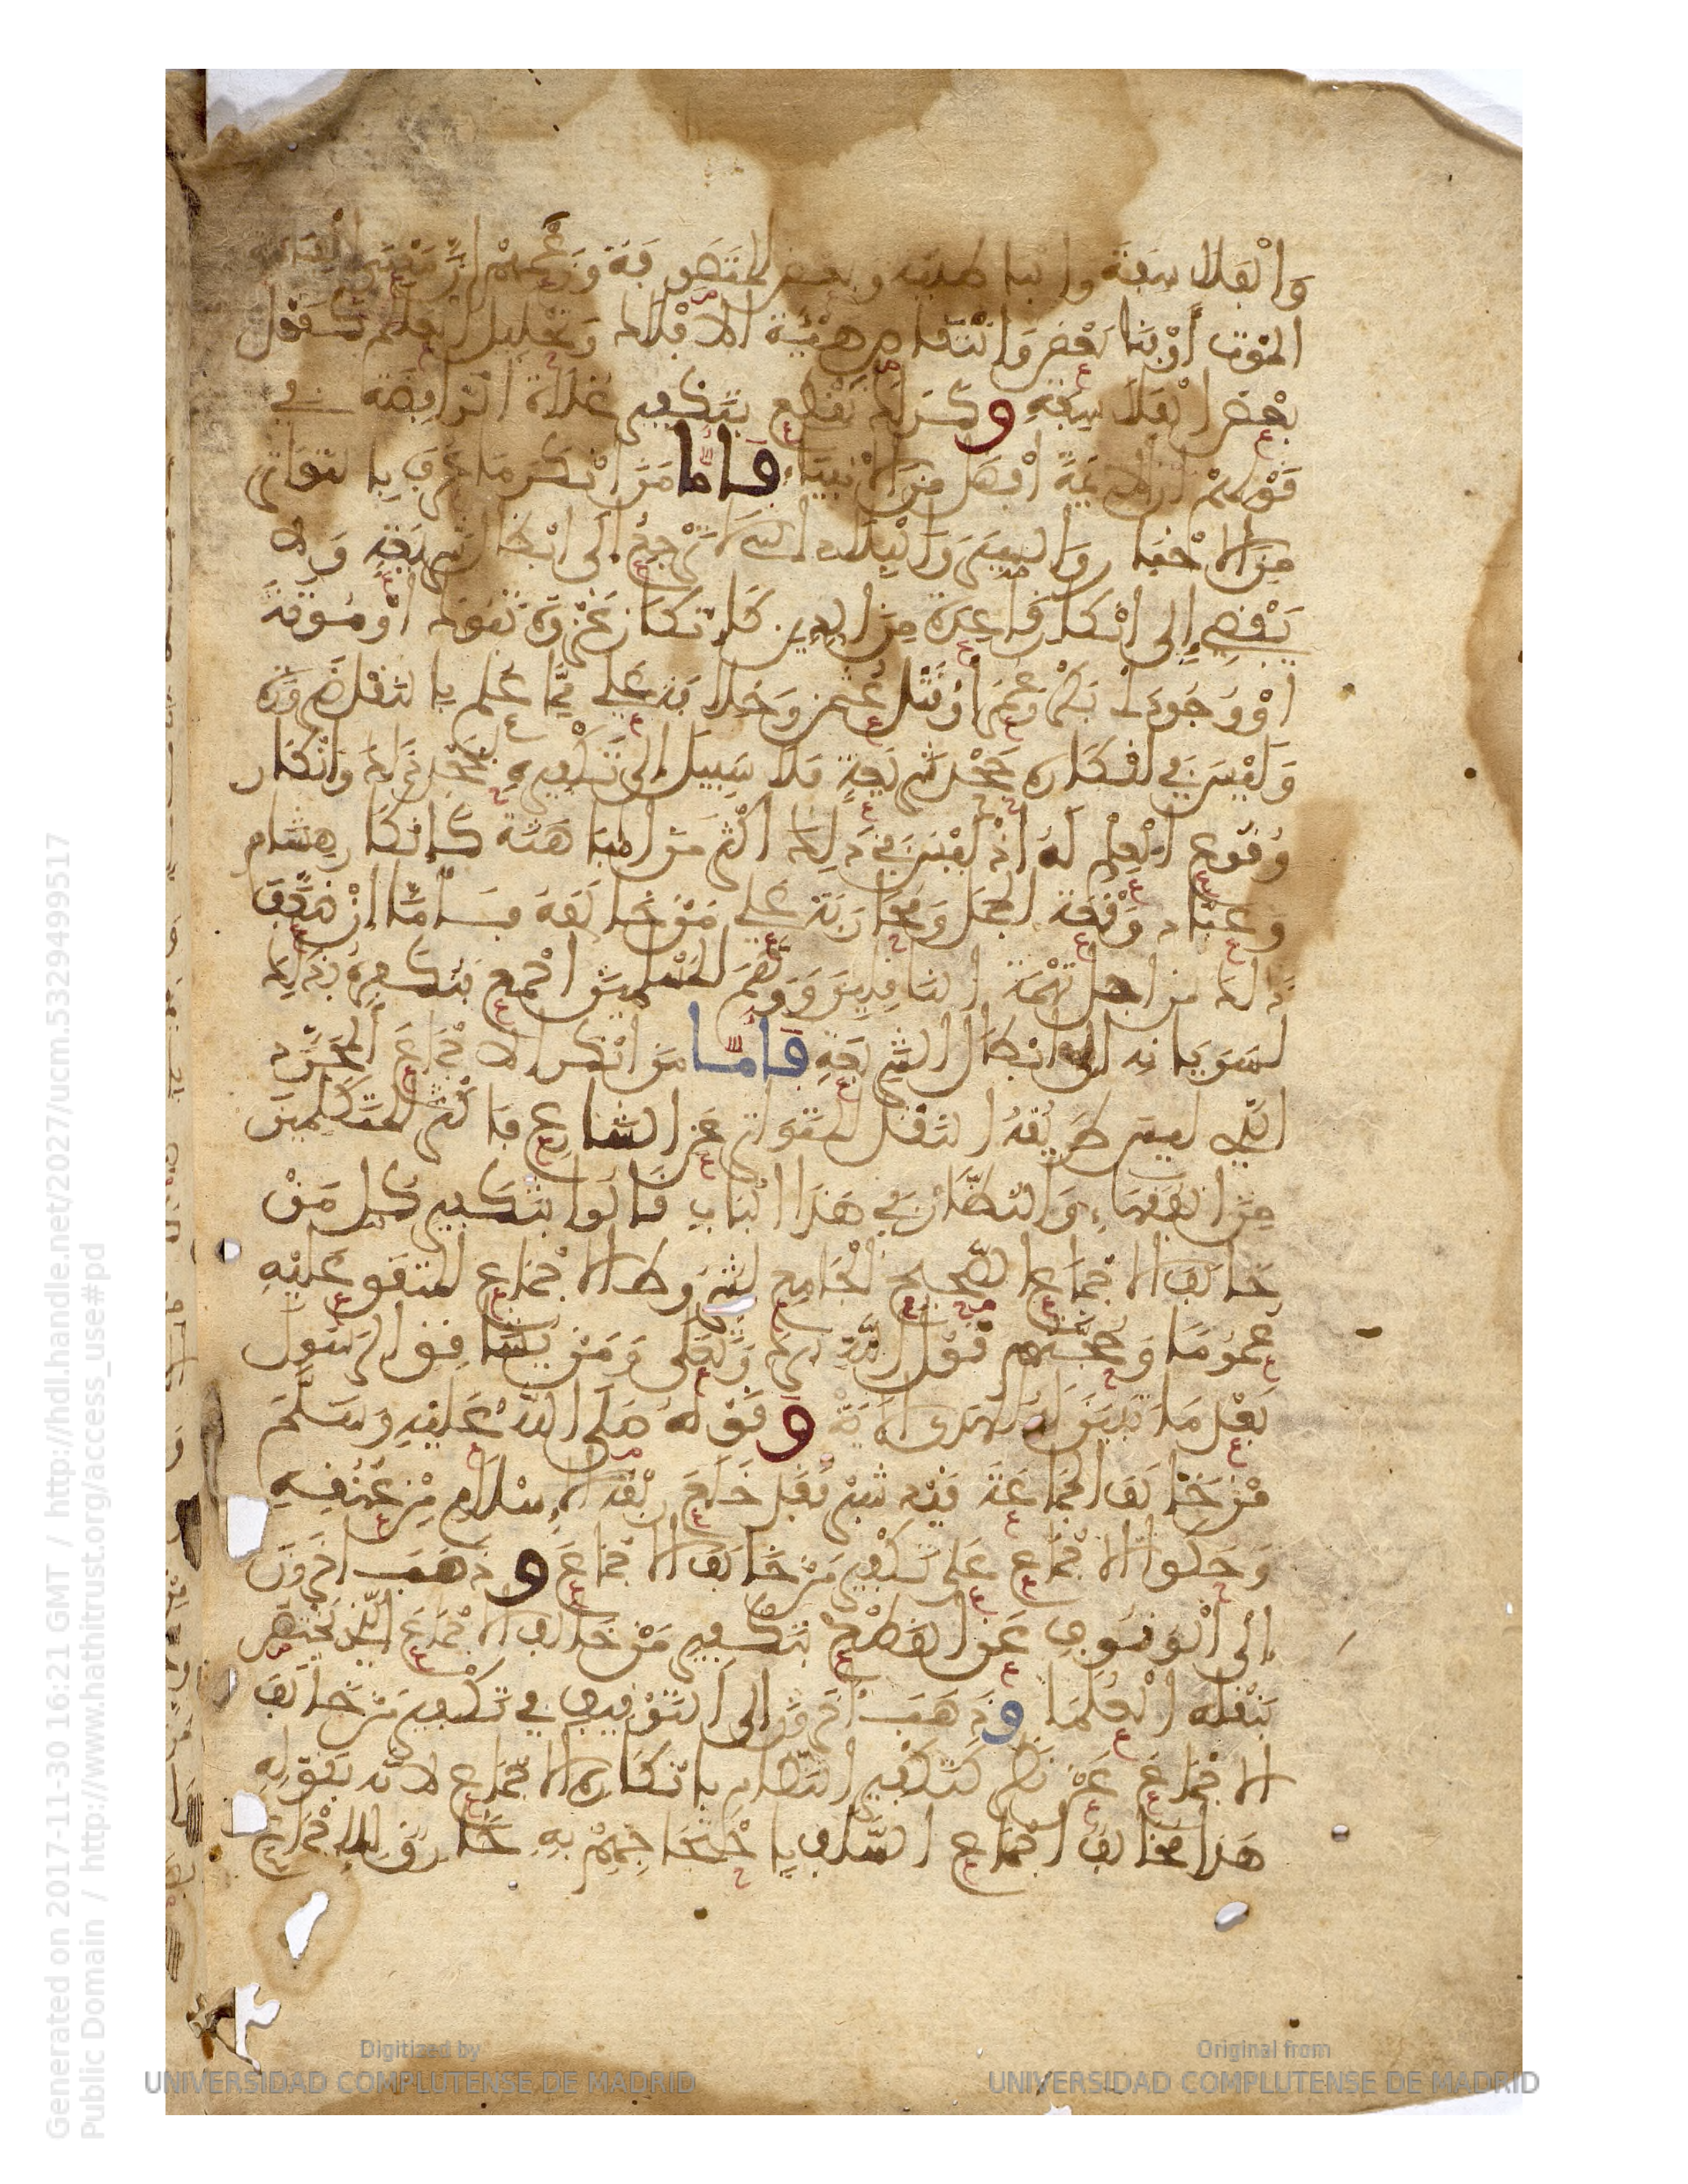 وَالْفَلَاسِفَةِ وَالْبَاطِنِيَّةِ وَبَعْضِ الْمُتَصَوِّفَةِ وَزَعْمِهِمْ أَنَّ مَعْنَى الْقِيَامَةِ
الْمَوْت أَوْ فَنَا مَحْض وَانْتِقَاض هَيْئَةِ الْأَفْلَاك وَتَحْلِيل الْعَالَم كَقَوْل
بَعْضِ الْفَلَاسِفَةِ وَكَذَلِكَ نَقْطَع بِتَكْفِيرِ غُلَاةِ الرَّافِضَةِ فِي
قَوْلِهِمْ أَنَّ الْأَئِمَّةَ أَفْضَل مِنَ الْأَنْبِيَاءِ فَأَمَّا مَنْ أَنْكَرَ مَا عُرِفَ بِالتَّوَاتُرِ
مِنَ الْأَخْبَارِ وَالسِّيَرِ وَالْبِلَادِ الَّتِي لَا تَرْجِعُ إِلَى إِبْطَالِ شَرِيعَةٍ وَلَا
يُفْضِي إِلَى إِنْكَارِ قَاعِدَةٍ مِنَ الدِّينِ كَإِنْكَارِ غَزْوَةِ تَبُوك أَوْ مُؤْتَةَ
أَوْ وُجُودِ أَبِي بَكْرٍ وَعُمَرَ أَوْ قَتْلِ عُثْمَن وَخِلَافَةِ عَلِي مِمَّا عُلِمَ بِالنَّقْلِ ضَرُورَةً
وَلَيْسَ فِي إِنْكَارِهِ جَحْدُ شَرِيعَةٍ فَلَا سَبِيلَ إِلَى تَكْفِيرِهِ بِجَحْدِ ذَلِكَ وَإِنْكَارِ
وُقُوعِ الْعِلْمِ لَهُ إِذْ لَيْسَ فِي ذَلِكَ أَكْثَرُ مِنَ الْمُبَاهَتَةِ كَإِنْكَارِ هِشَامٍ
وَعَبَّادٍ وَقْعَةَ الْجَمَلِ وَمُحَارَبَةَ عَلِي مَنْ خَالَفَهُ فَأَمَّا إِنْ ضَعَّفَ
ذَلِكَ مِن أَجْلِ تُهْمَةِ النَّاقِلِينَ وَوَهَّمَ الْمُسْلِمِينَ أَجْمَع فَنُكَفِّرهُ بِذَلِكَ
لِسَرَيَانِهِ إِلَى إِبْطَالِ الشَّرِيعَةِ فَأَمَّا مَنْ أَنْكَرَ الْإِجْمَاعَ الْمُجَرَّد
الَّذِي لَيْسَ طَرِيقُهُ النَّقْلَ الْمُتَوَاتِرَ عَنِ الشَّارِعِ فَأَكْثَرُ الْمُتَكَلِّمِينَ
مِنَ الْفُقَهَاءِ وَالنُّظَّارِ فِي هَذَا الْبَابِ قَالُوا بِتَكْفِيرِ كُلِّ مَنْ
خَالَفَ الْإِجْمَاعَ الصَّحِيحَ الْجَامِعَ لِشُرُوطِ الْإِجْمَاعِ الْمُتَّفَقِ عَلَيْهِ
عُمُومًا وَحُجَّتُهُم قَوْلُ اللَّهِ تَعَلَى وَمَنْ يُشَاقِقِ الرَّسُولَ
بَعْدِ مَا تَبَيَّنَ لَهُ الْهُدَى الْآيَةَ وَقَوْلُهُ صَلَّى اللَّهُ عَلَيْهِ وَسَلَّمَ
مَنْ خَالَفَ الْجَمَاعَةَ قِيدَ شِبْرٍ فَقَد خَلَعَ رِبْقَةَ الْإِسْلَامِ مِنْ عُنُقِهِ
وَحَكَوُا الْإِجْمَاعَ عَلَى تَكْفِيرِ مَنْ خَالَفَ الْإِجْمَاعَ وَذَهَبَ آخَرُونَ
إِلَى الْوُقُوفِ عَنِ الْقَطْعِ بِتَكْفِيرِ مَنْ خَالَفَ الْإِجْمَاعَ الَّذِي يَخْتَصُّ
بِنَقْلِهِ الْعُلَمَا وَذَهَبَ آخَرُونَ إِلَى التَّوْقِيفِ فِي تَكْفِيرِ مَنْ خَالَفَ
الْإِجْمَاعَ عَنْ نَظَرٍ كَتَكْفِيرِ النَّظَّامِ بِإِنْكَارِهِ الْإِجْمَاعَ لِأَنَّهُ بِقَوْلِهِ
هَذَا مُخَالِفٌ إِجْمَاعَ السَّلَفِ بِاحْتِجَاجِهِمْ بِهِ خَارِقٌ لِلْإِجْمَاعِ